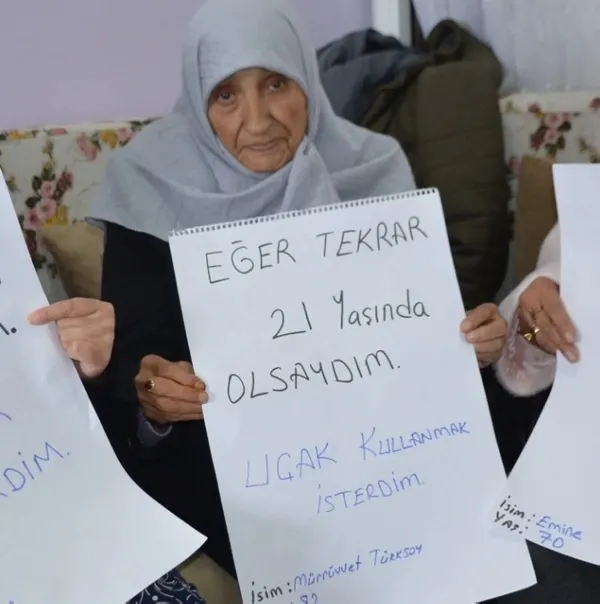 EĞER TEKRAR
21 Yaşında
OLSAYDIM.
UÇAK KULLANMAK
İSTERDİM.
İsim: Mürrüvvet Türksoy
82
DİM.
İsim: Emine
YAŞ: 70